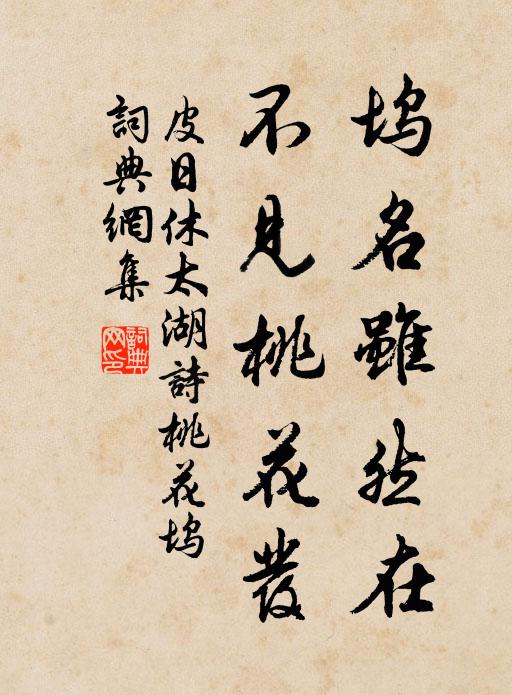 塢名雖然在
不見桃花發
皮日休太湖詩桃花塢
詞典網集
詞典網印